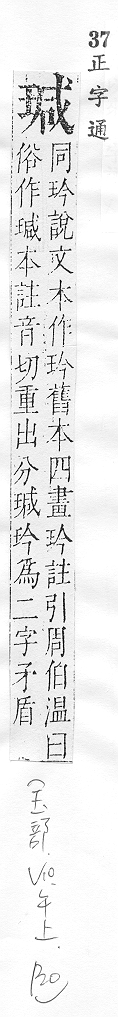 37 正字通
瑊
同玪說文本作玪舊本四畫玪註引周伯溫曰
俗作瑊本註音切重出分瑊玪爲二字矛盾
(玉部. V10. 午上. P20)